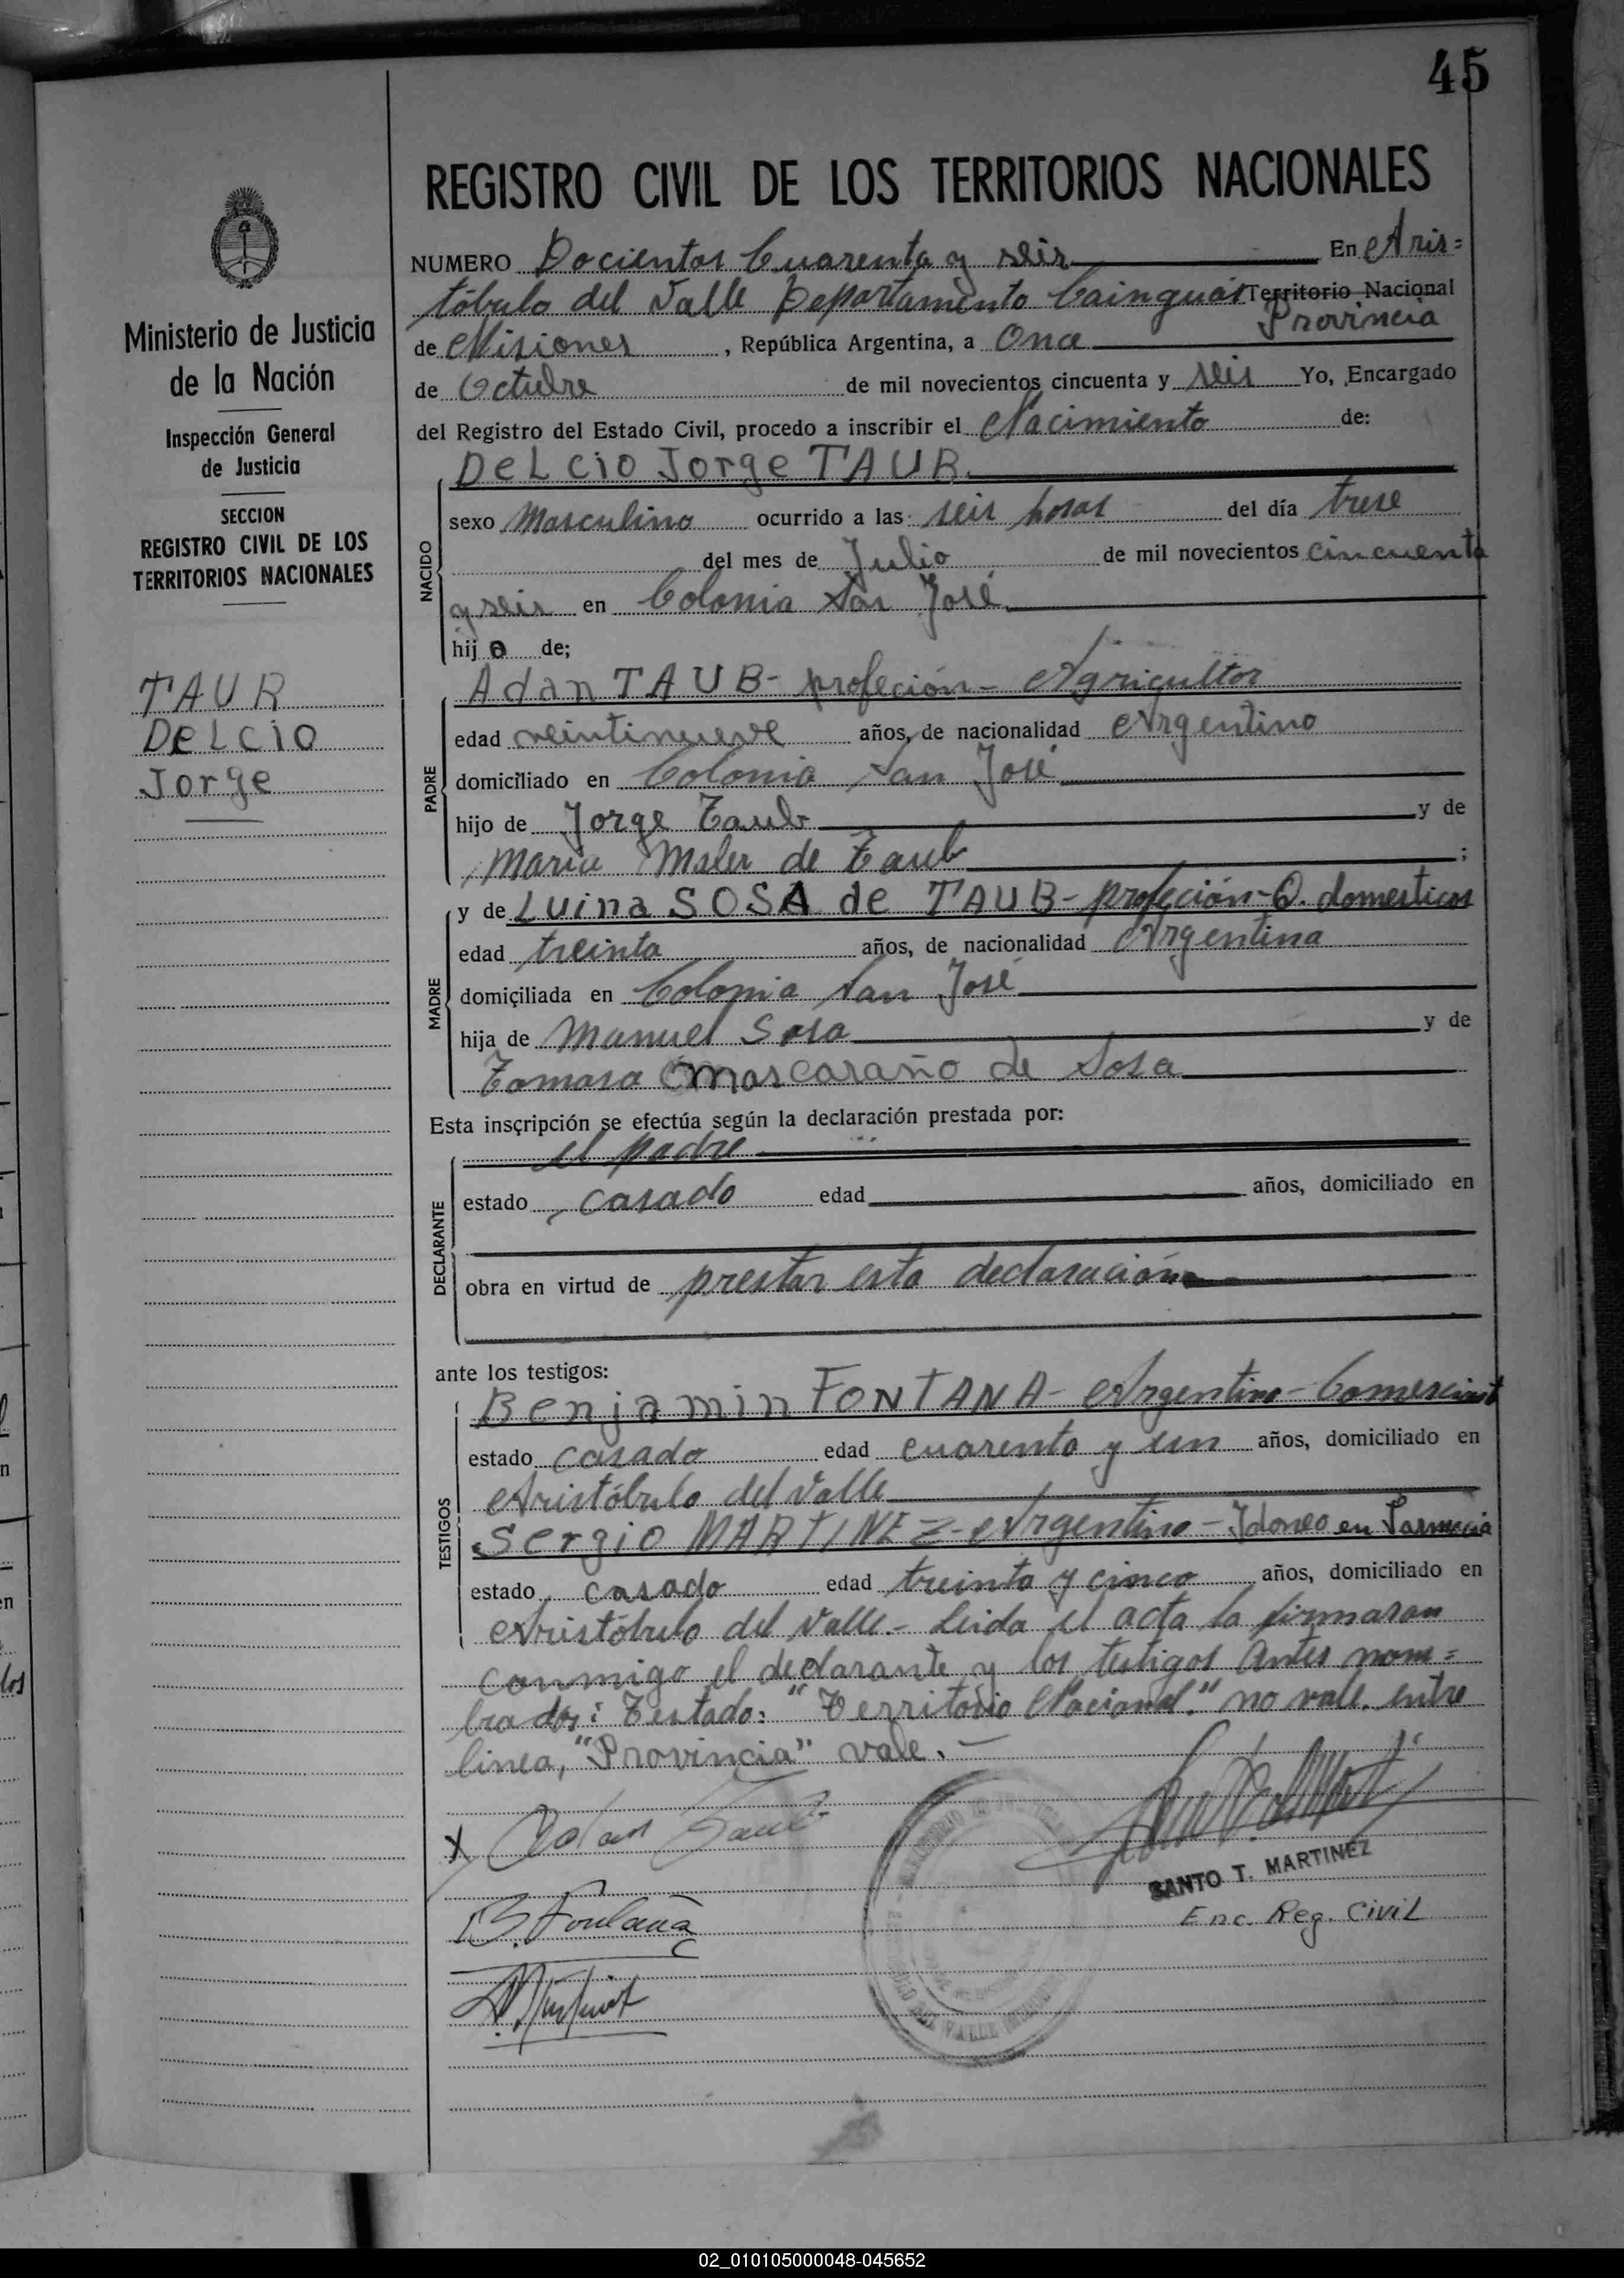 45
REGISTRO CIVIL DE LOS TERRITORIOS NACIONALES
Ministerio de Justicia
de la Nación
Inspección General
de Justicia
SECCION
REGISTRO CIVIL DE LOS
TERRITORIOS NACIONALES
TAUB
DeLcio
Jorge
NUMERO Docientos Cuarenta y seis En Aris=
tóbulo del Valle Departamento Cainguás Territorio Nacional
Provincia
de Misiones, República Argentina, a Once
de Octubre de mil novecientos cincuenta y seis Yo, Encargado
del Registro del Estado Civil, procedo a inscribir el Nacimiento de:
DeLcio Jorge TAUB.
NACIDO
sexo Masculino ocurrido a las seis horas del día trese
del mes de Julio de mil novecientos cincuenta
y seis en Colonia San José.
hijo de;
Adan TAUB - profeción - Agricultor
PADRE
edad veintinueve años, de nacionalidad Argentino
domiciliado en Colonia San José
hijo de Jorge Taub y de
Maria Maler de Taub ;
y de Luina SOSA de TAUB - profeción - Q. domesticos
MADRE
edad treinta años, de nacionalidad Argentina
domiciliada en Colonia San José
hija de Manuel Sosa y de
Tomasa Mascaraño de Sosa
Esta inscripción se efectúa según la declaración prestada por:
el padre
DECLARANTE
estado casado edad años, domiciliado en
obra en virtud de prestar esta declaración
ante los testigos:
Benjamin FONTANA - Argentino - Comerciant
TESTIGOS
estado casado edad cuarenta y un años, domiciliado en
Aristóbulo del Valle
Sergio MARTINEZ - Argentino - Idoneo en Farmacia
estado casado edad treinta y cinco años, domiciliado en
Aristóbulo del Valle.- Leida el acta la firmaran
conmigo el declarante y los testigos antes nom=
brados: Testado: "Territorio Nacional." no vale. entre
linea, "Provincia" vale.-
x Adan Taub
B. Fontana
SANTO T. MARTINEZ
Enc. Reg. CiviL
02_010105000048-045652